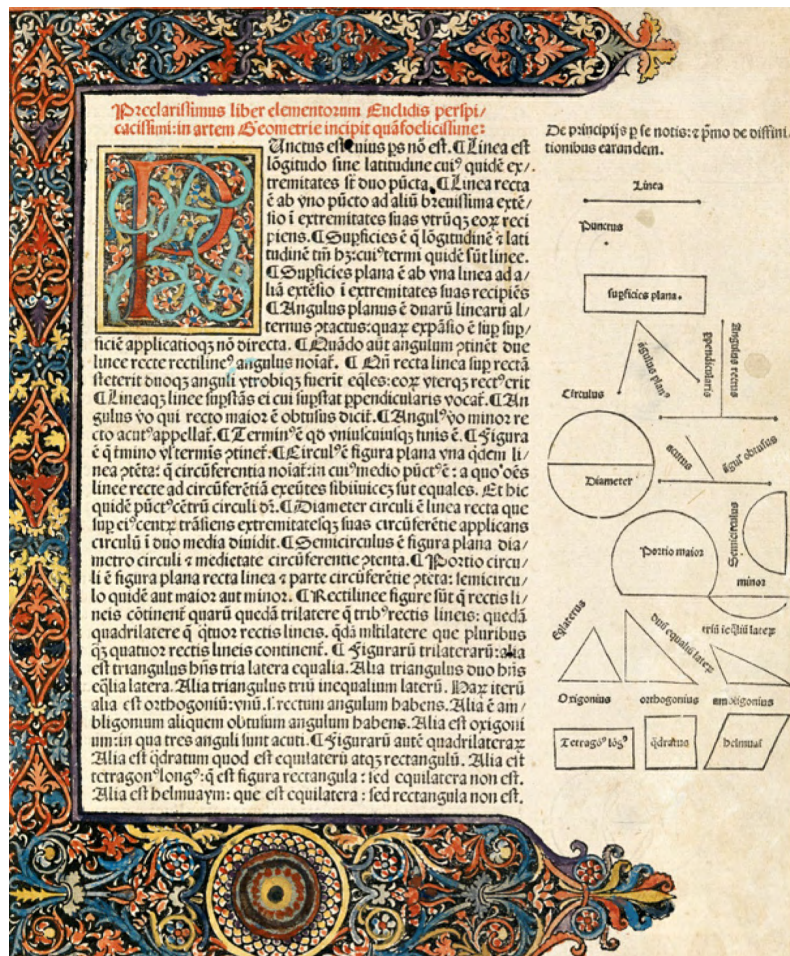 Preclarissimus liber elementorum Euclidis perspi/
cacissimi: in artem Geometrie incipit quā foelicissime:
Punctus est cuius ps nō est. ¶ Linea est
lōgitudo sine latitudine cuiꝰ quidē ex/
tremitates sr̄ duo pūcta. ¶ Linea recta
ē ab vno pūcto ad aliū breuissima extē/
sio ī extremitates suas vtrūqꝫ eoꝝ reci
piens. ¶ Supficies ē q̄ lōgitudinē ⁊ lati
tudinē tm̄ hꝫ: cuiꝰ termi quidē sūt linee.
¶ Supficies plana ē ab vna linea ad a/
liā extēsio ī extremitates suas recipiēs
¶ Angulus planus ē duarū linearū al/
ternus ꝯtactus: quaꝝ expāsio ē sup sup/
ficiē applicatioqꝫ nō directa. ¶ Quādo aūt angulum ꝯtinēt due
linee recte rectilineꝰ angulus noīat̄. ¶ Qn̄ recta linea sup rectā
steterit duoqꝫ anguli vtrobiqꝫ fuerit eq̄les: eoꝝ vterqꝫ rectꝰ erit
¶ Lineaqꝫ linee supstās ei cui supstat ppendicularis vocat̄. ¶ An
gulus v̄o qui recto maior ē obtusus dicit̄. ¶ Angulꝰ v̄o minor re
cto acutꝰ appellat̄. ¶ Terminꝰ ē qd̄ vniuscuiusqꝫ finis ē. ¶ Figura
ē q̄ tmino vl̓ termīs ꝯtinet̄. ¶ Circulꝰ ē figura plana vna qdem li/
nea ꝯtēta: q̄ circūferentia noīat̄: in cuiꝰ medio pūctꝰ ē: a quo oēs
linee recte ad circūferētiā exeūtes sibiīuiceꝫ sūt equales. Et hic
quidē pūctꝰ cētrū circuli dr̄. ¶ Diameter circuli ē linea recta que
sup eiꝰ centꝝ trāsiens extremitatesqꝫ suas circūferētie applicans
circulū ī duo media diuidit. ¶ Semicirculus ē figura plana dia/
metro circuli ⁊ medietate circūferentie ꝯtenta. ¶ Portio circu/
li ē figura plana recta linea ⁊ parte circūferētie ꝯtēta: semicircu/
lo quidē aut maior aut minor. ¶ Rectilinee figure sūt q̄ rectis li/
neis cōtinent̄ quarū quedā trilatere q̄ tribꝰ rectis lineis: quedā
quadrilatere q̄ qtuor rectis lineis. qdā ml̓tilatere que pluribus
qꝫ quatuor rectis lineis continent̄. ¶ Figurarū trilaterarū: alia
est triangulus hn̄s tria latera equalia. Alia triangulus duo hn̄s
eq̄lia latera. Alia triangulus triū inequalium laterū. Haꝝ iterū
alia est orthogoniū: vnū .s. rectum angulum habens. Alia ē am/
bligonium aliquem obtusum angulum habens. Alia est oxigoni
um: in qua tres anguli sunt acuti. ¶ Figurarū autē quadrilateraꝝ
Alia est qdratum quod est equilaterū atqꝫ rectangulū. Alia est
tetragonꝰ longꝰ: q̄ est figura rectangula: sed equilatera non est.
Alia est helmuaym: que est equilatera: sed rectangula non est.
De principijs p se notis: ⁊ pmo de diffini
tionibus earandem.
Linea
Punctus
supficies plana.
āgulus planꝰ
ppendicularis
Angulus rectus
Circulus
Diameter
acutus
āgulꝰ obtusus
Portio maior
Semicirculus
minor
Eqlaterus
duū equaliū lateꝝ
triū ieq̄liū lateꝝ
Oxigonius
orthogonius
ambligonius
Tetragōꝰ lōgꝰ
qdratus
helmuai